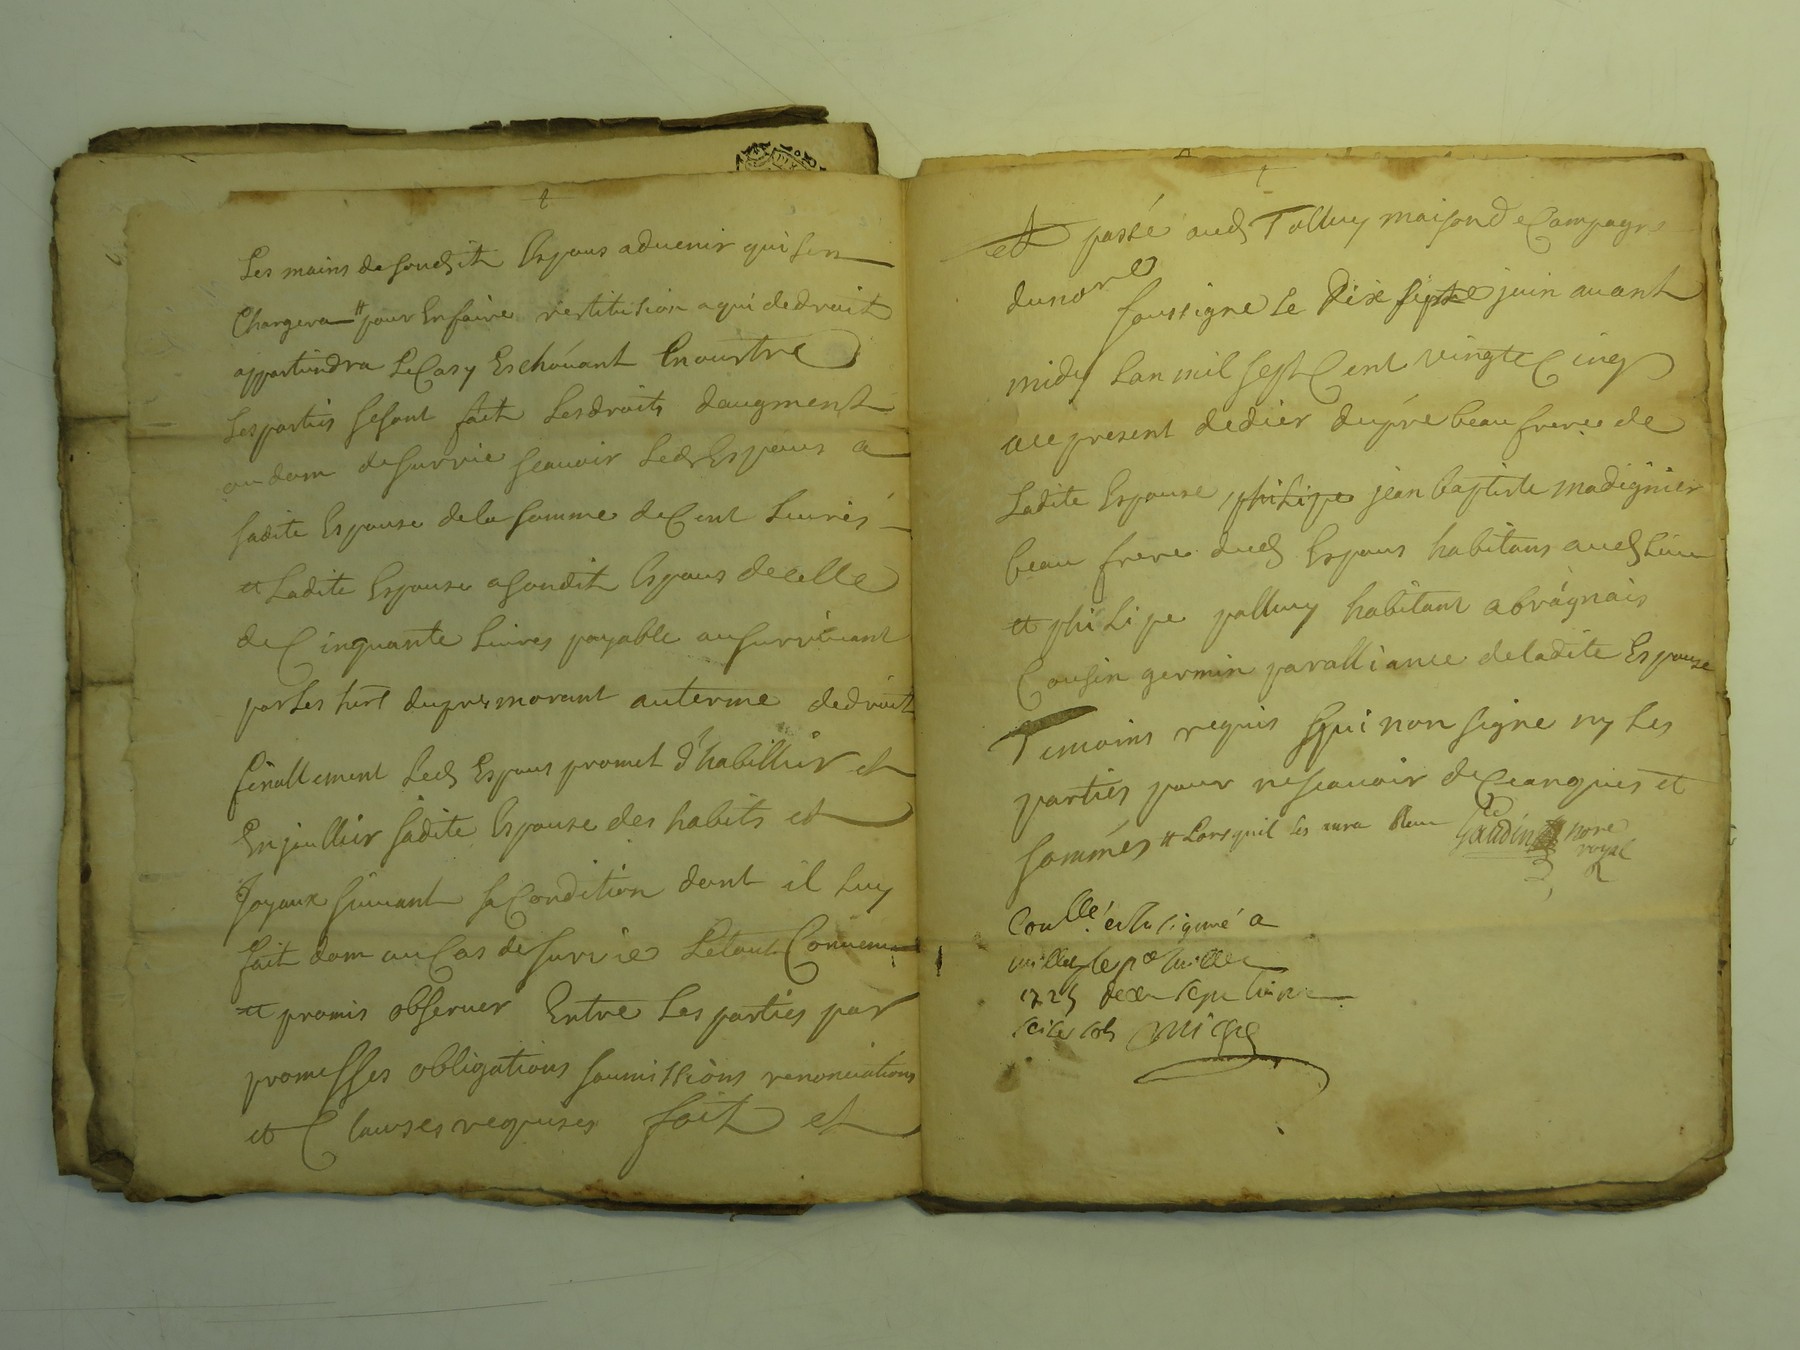 Les mains de soudit Espous aduenir qui sen
Chargera # pour En faire restitution a qui de droit
appartiendra Le Casy Eschéuant En oustre
Les parties se sont fait Les droits daugment
ou dom de survie scauoir Led Espous a
sadite Espouse de la somme de Cent Liures
et Ladite Espouse a soudit Espous de celle
de Cinquante Liures payable au surviuant
par Les du premorant au terme de droit
finallement Led Espous promet d'habillier et
Enjoullier sadite Espouse des habits et
Joyaux suiuant sa Condition dont il Luy
fait dom au Cas de survie Le tout Conuenu
et promis obseruer Entre Les parties par
promesses obligations soumissions renonciations
et Clauses requises fait et
et passé aud Tolluy maison de Campagne
du nore
soussigne Le Dix sept juin auant
midy Lan mil sept Cent vingte Cinq
au present dedier dupré beau frere de
Ladite Espouse philipe jean baptiste madignier
beau frere dud Espous habitans aud Lieu
et philipe palluy habitant a
Cousin germin par alliance de ladite Espouse
Temoins requis qui non signe ny Les
parties pour ne scauoir de Ce enquis et
sommés # Lorsquil Les aura Reçeu Gaudin nore
royal
Conllé
le
1725